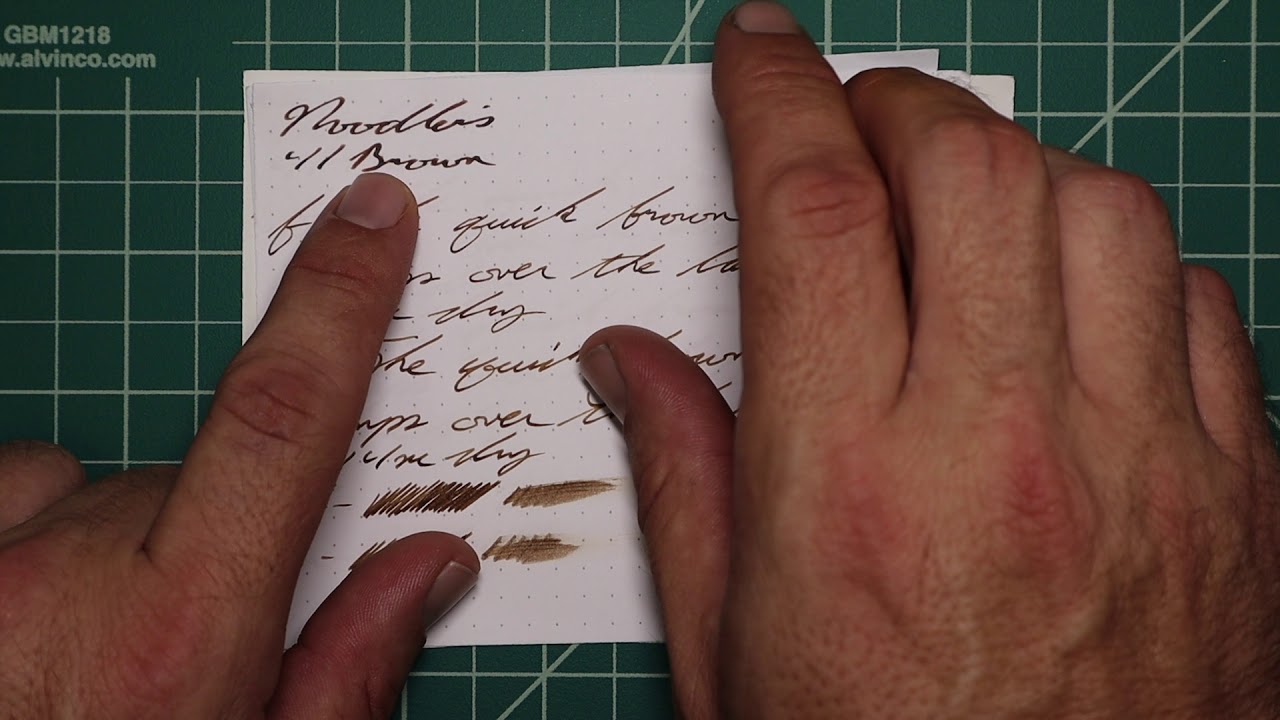 GBM1218
w.alvinco.com
Noodler's
'41 Brown
quick brown
over the la
dry
The quick
mps over
dry